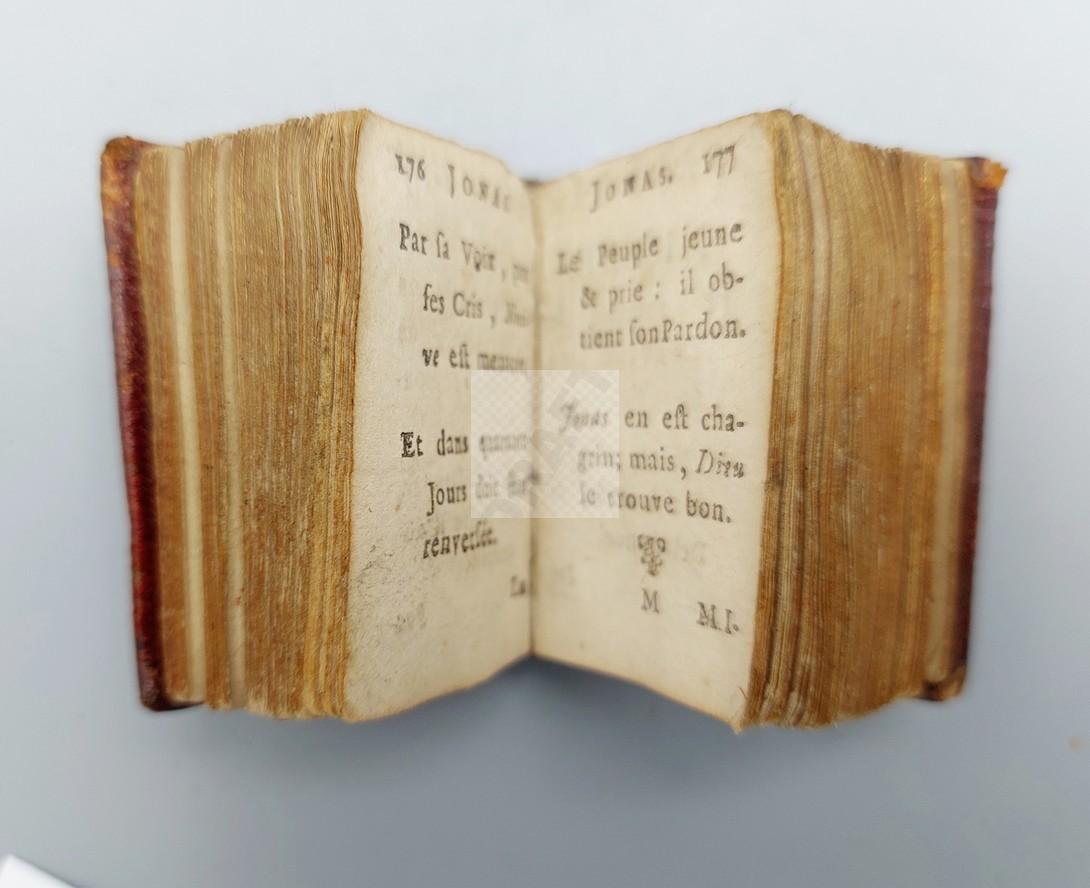 176 JONAS
Par ſa Voix, par
ſes Cris, Nini-
ve eſt menacée
Et dans quarante
Jours doit être
renverſée.
Le
JONAS. 177
Le Peuple jeune
& prie : il ob-
tient ſon Pardon.
Jonas en eſt cha-
grin; mais, Dieu
le trouve bon.
M MI-